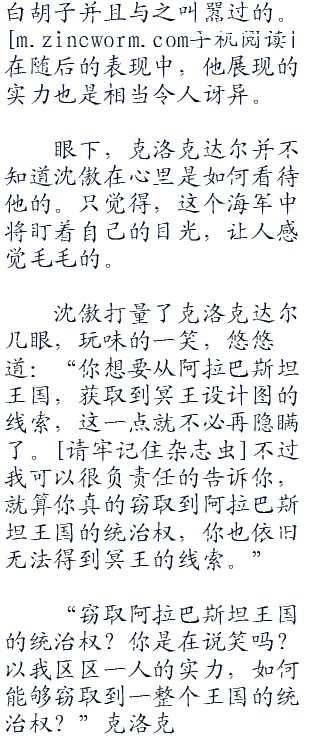 白胡子并且与之叫嚣过的。
[m.zincworm.com手机阅读]
在随后的表现中，他展现的
实力也是相当令人讶异。
眼下，克洛克达尔并不
知道沈傲在心里是如何看待
他的。只觉得，这个海军中
将盯着自己的目光，让人感
觉毛毛的。
沈傲打量了克洛克达尔
几眼，玩味的一笑，悠悠
道：“你想要从阿拉巴斯坦
王国，获取到冥王设计图的
线索，这一点就不必再隐瞒
了。[请牢记住杂志虫]不过
我可以很负责任的告诉你，
就算你真的窃取到阿拉巴斯
坦王国的统治权，你也依旧
无法得到冥王的线索。”
“窃取阿拉巴斯坦王国
的统治权？你是在说笑吗？
以我区区一人的实力，如何
能够窃取到一整个王国的统
治权？”克洛克